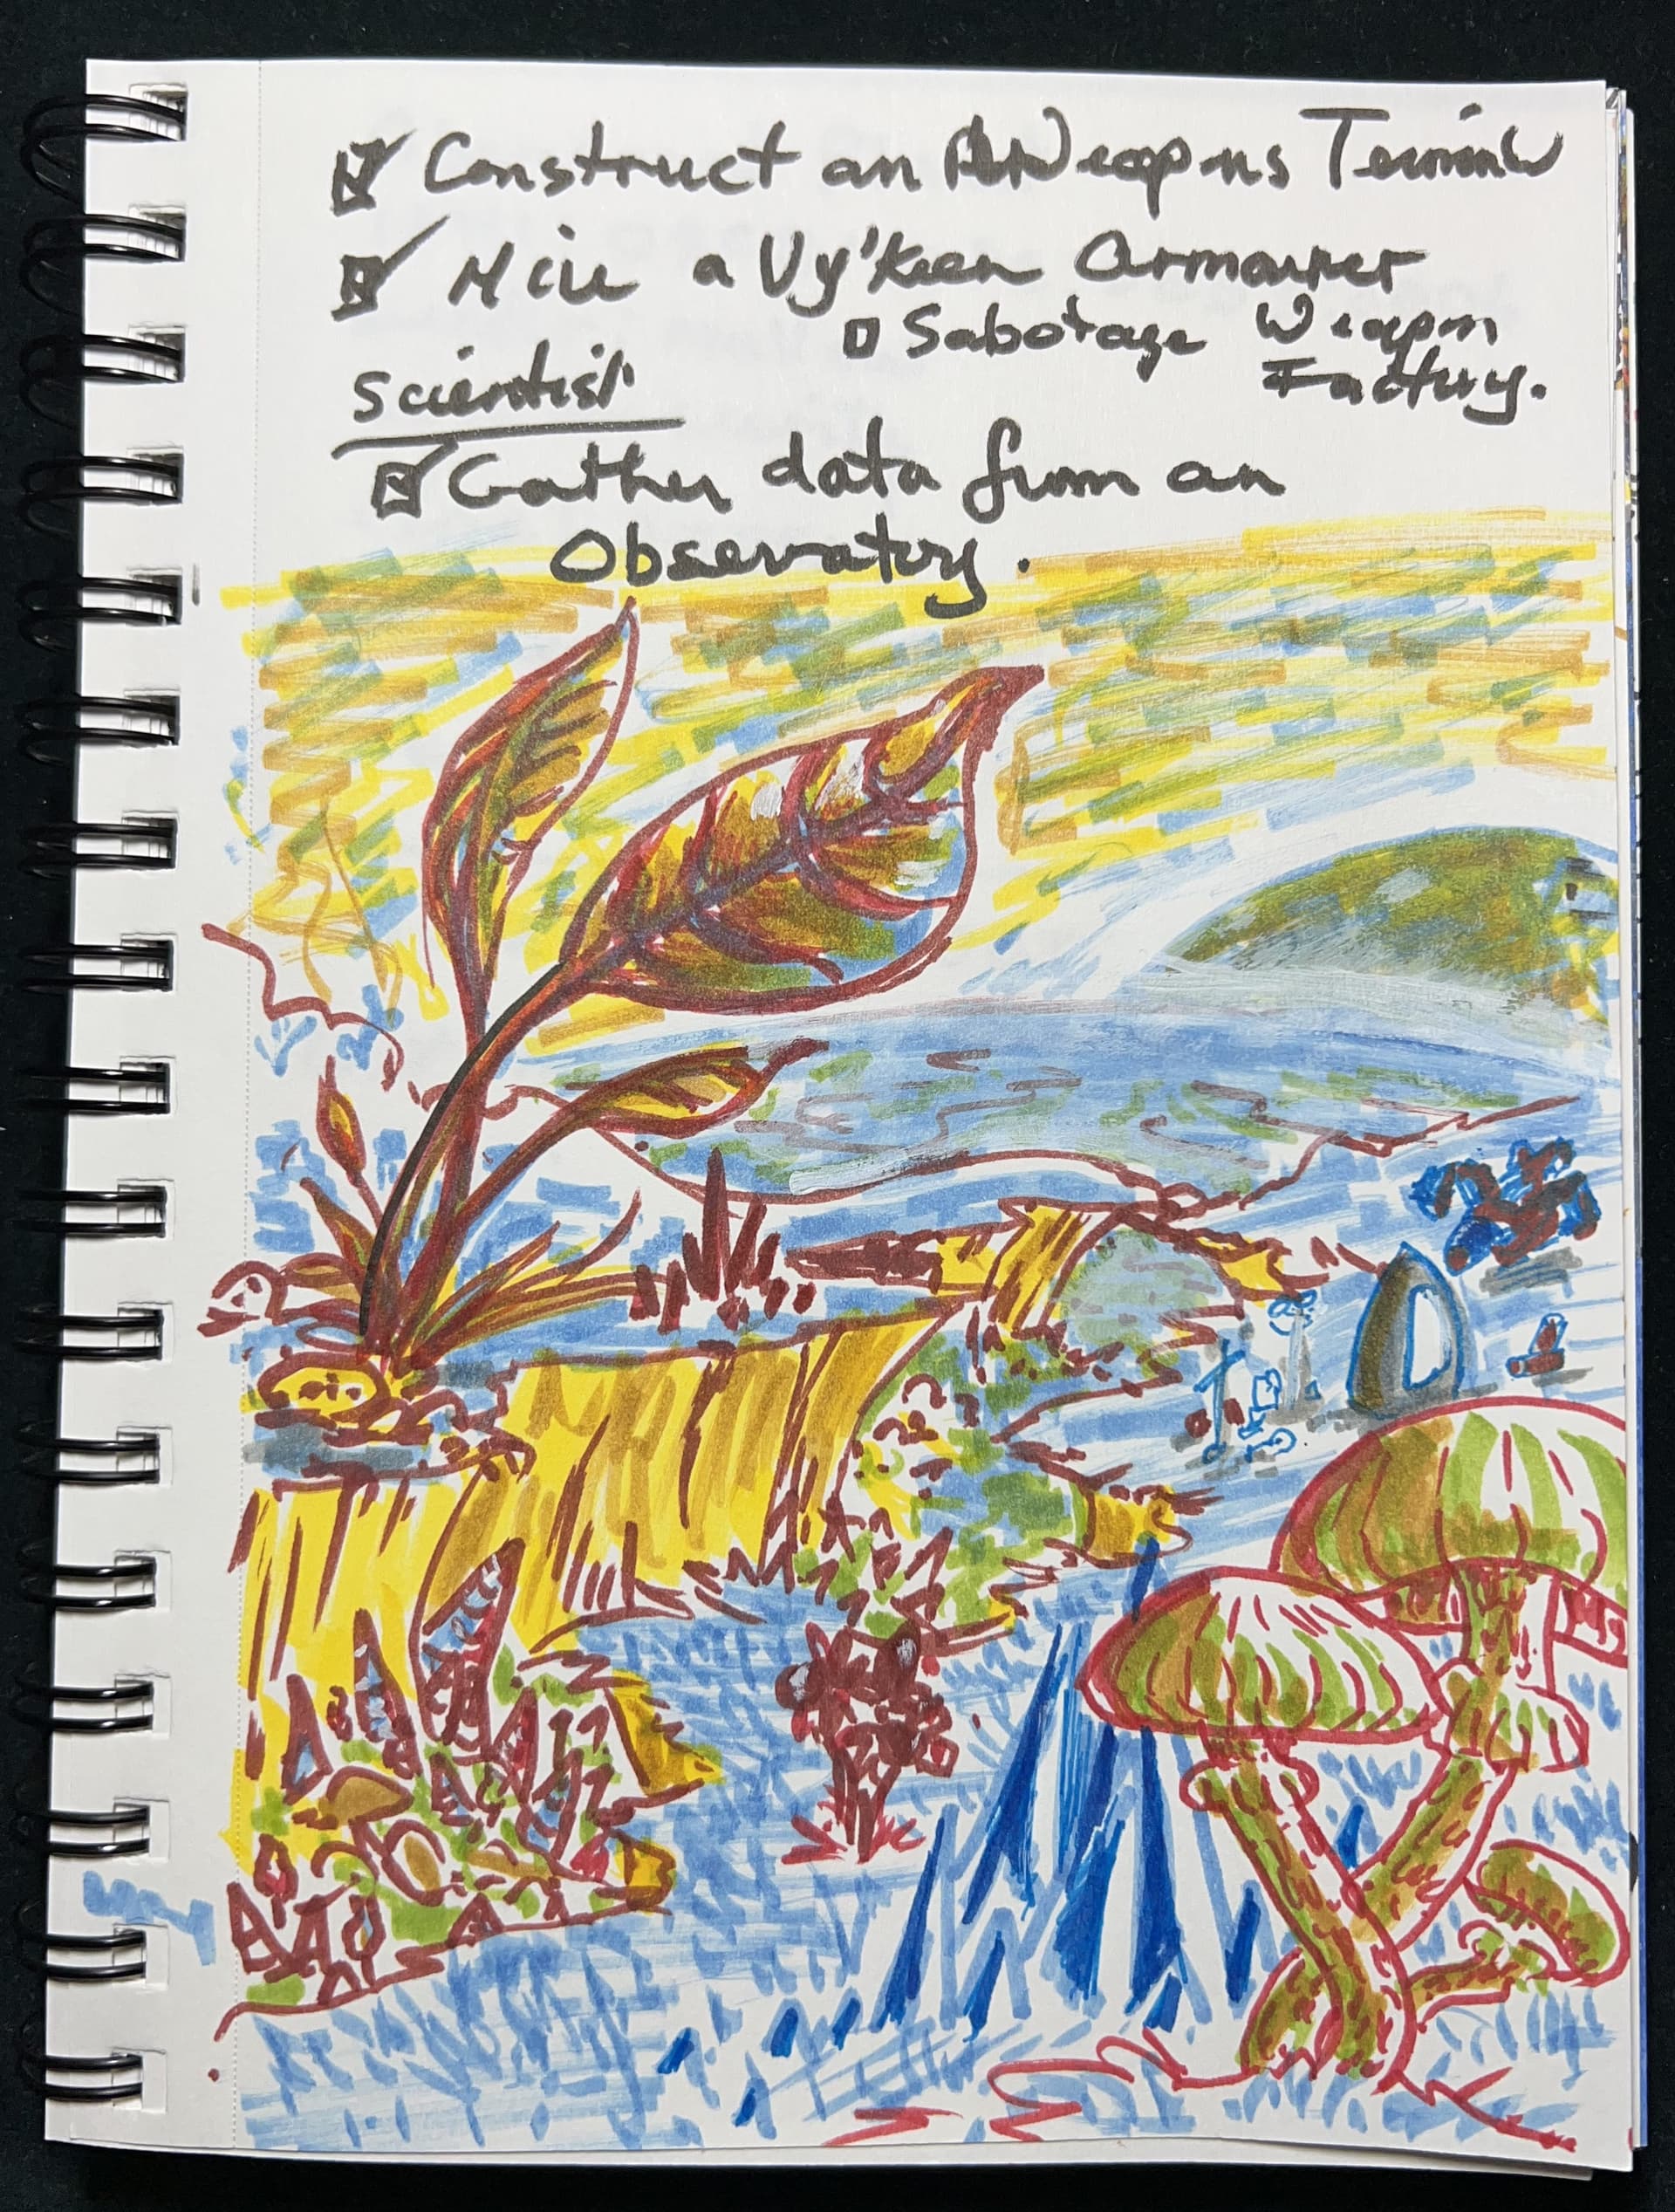 Construct an Weapons Terminal
Hire a Vy'keen Armourer
Sabotage Weapon
Factory.
Scientist
Gather data from an
Observatory.